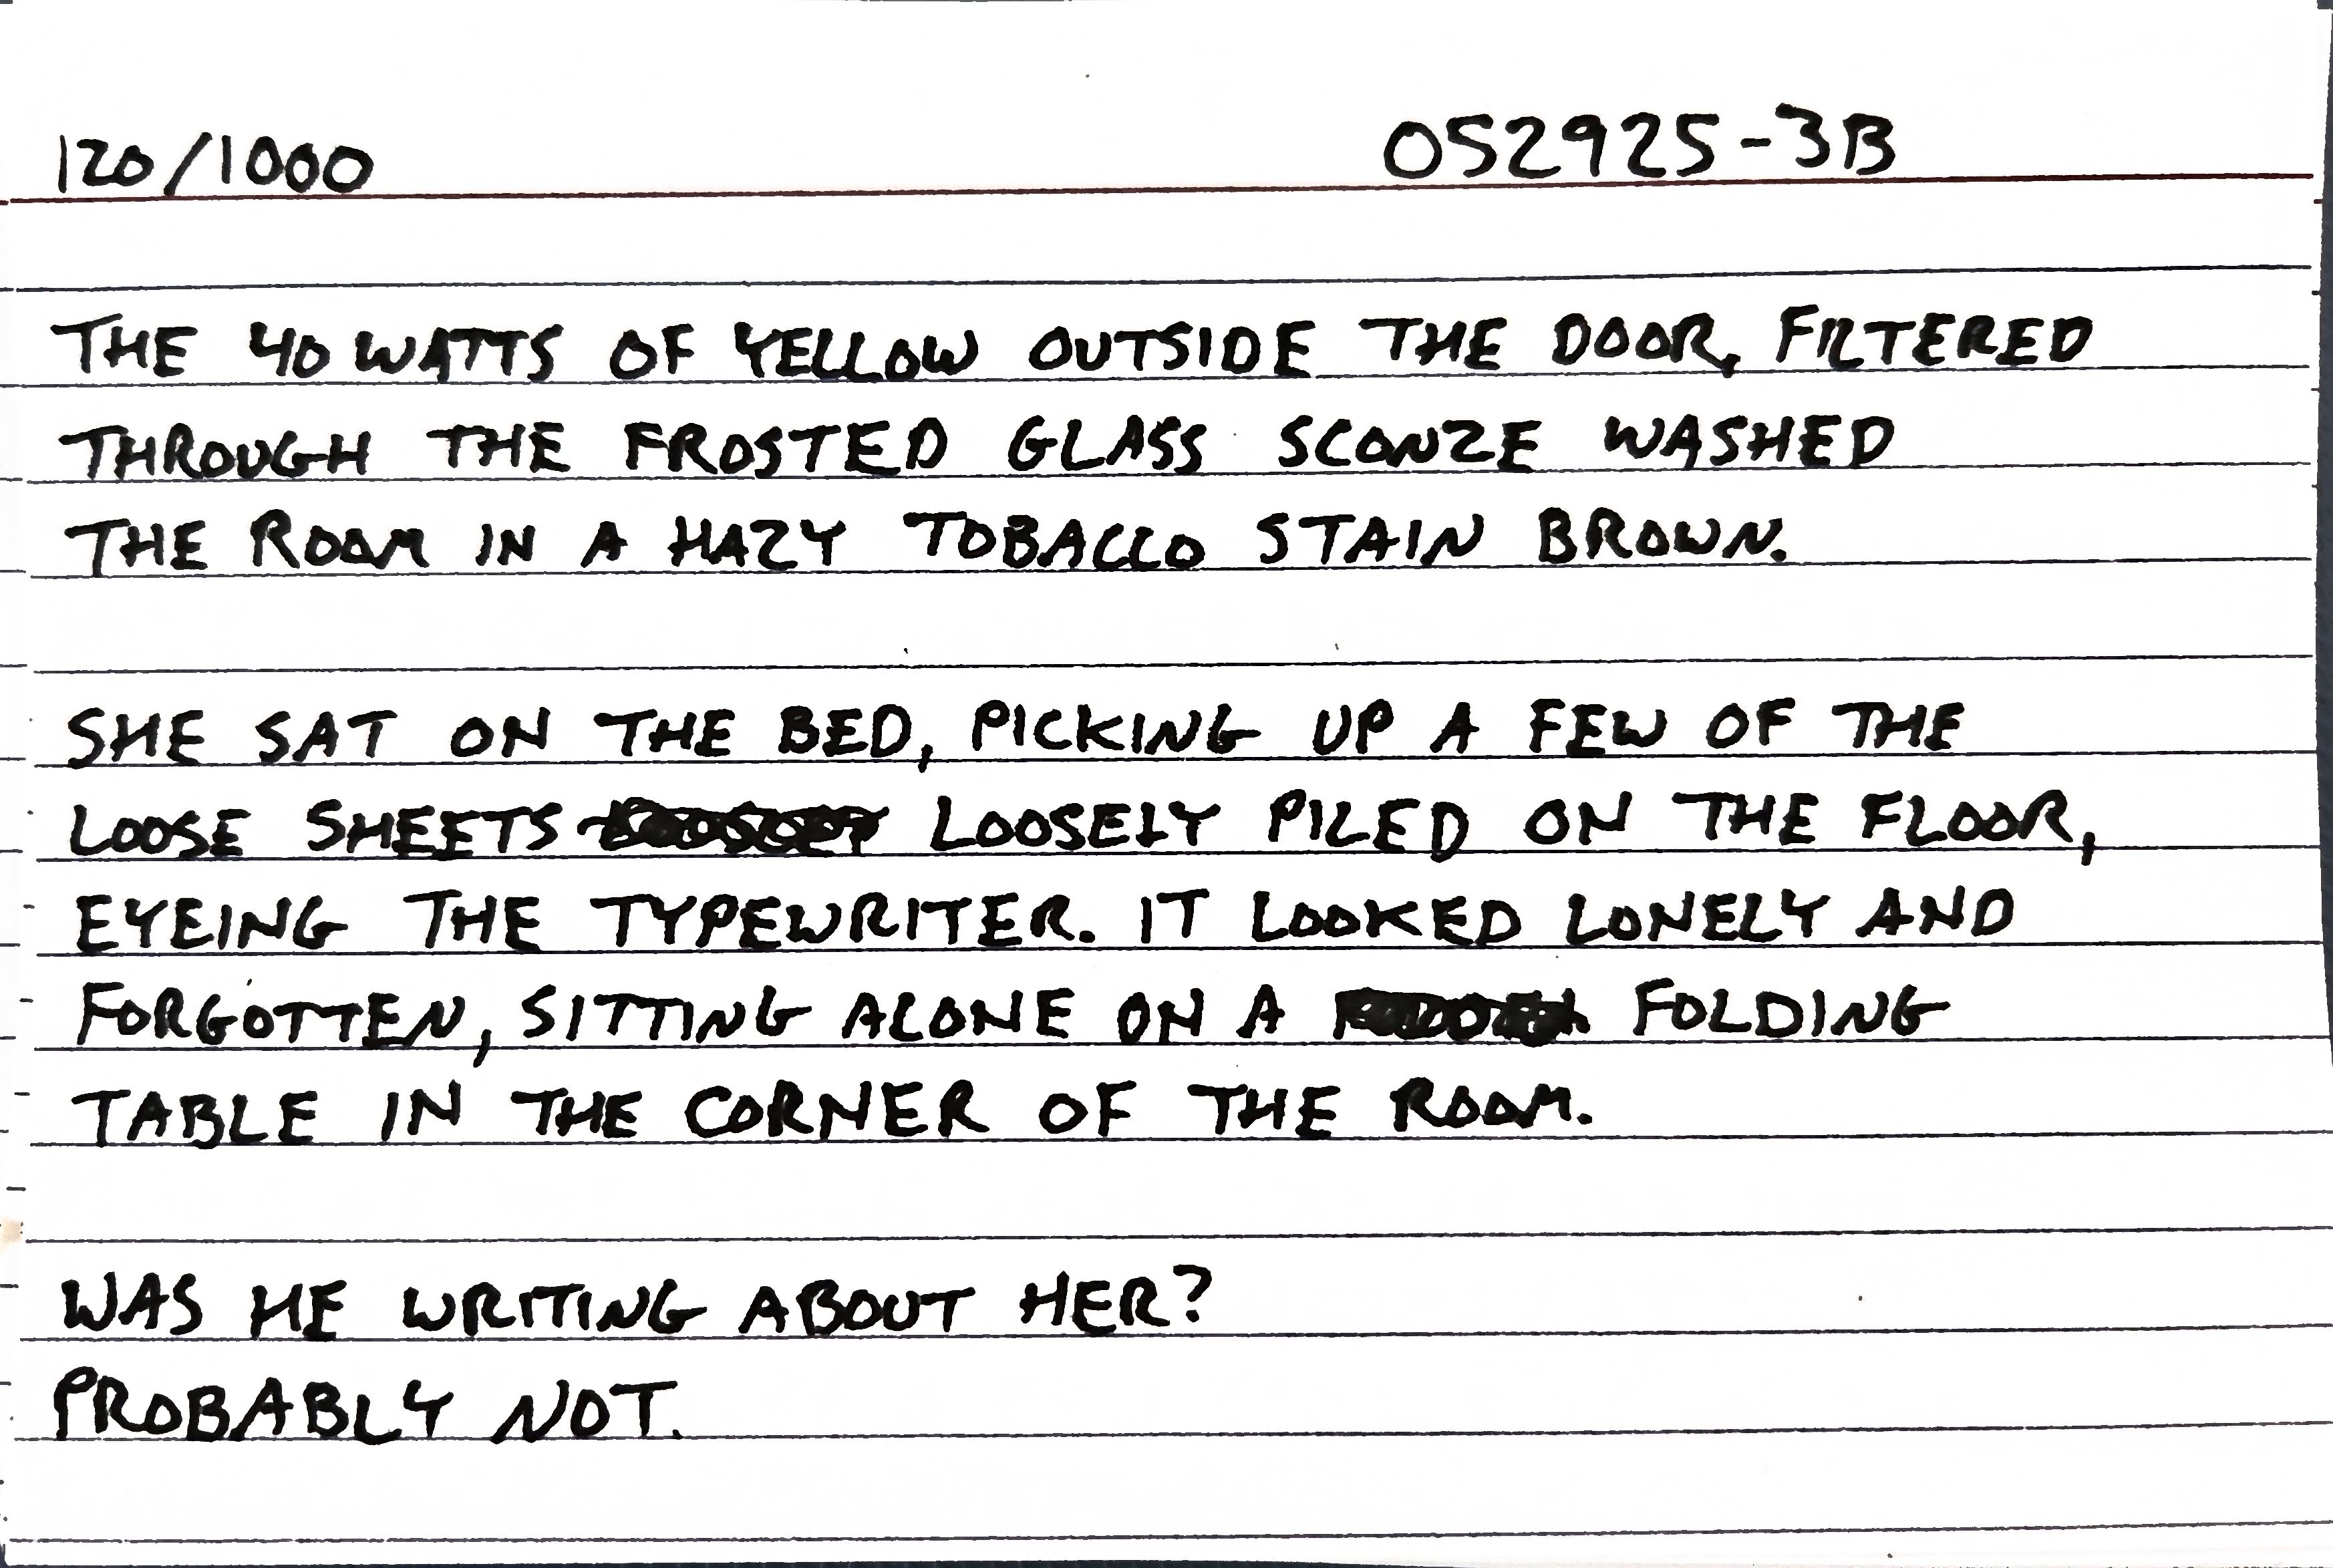 120/1000 052925-3B
THE 40 WATTS OF YELLOW OUTSIDE THE DOOR, FILTERED
THROUGH THE FROSTED GLASS SCONZE WASHED
THE ROOM IN A HAZY TOBACCO STAIN BROWN.
SHE SAT ON THE BED, PICKING UP A FEW OF THE
LOOSE SHEETS LOOSELY PILED ON THE FLOOR,
EYEING THE TYPEWRITER. IT LOOKED LONELY AND
FORGOTTEN, SITTING ALONE ON A FOLDING
TABLE IN THE CORNER OF THE ROOM.
WAS HE WRITING ABOUT HER?
PROBABLY NOT.